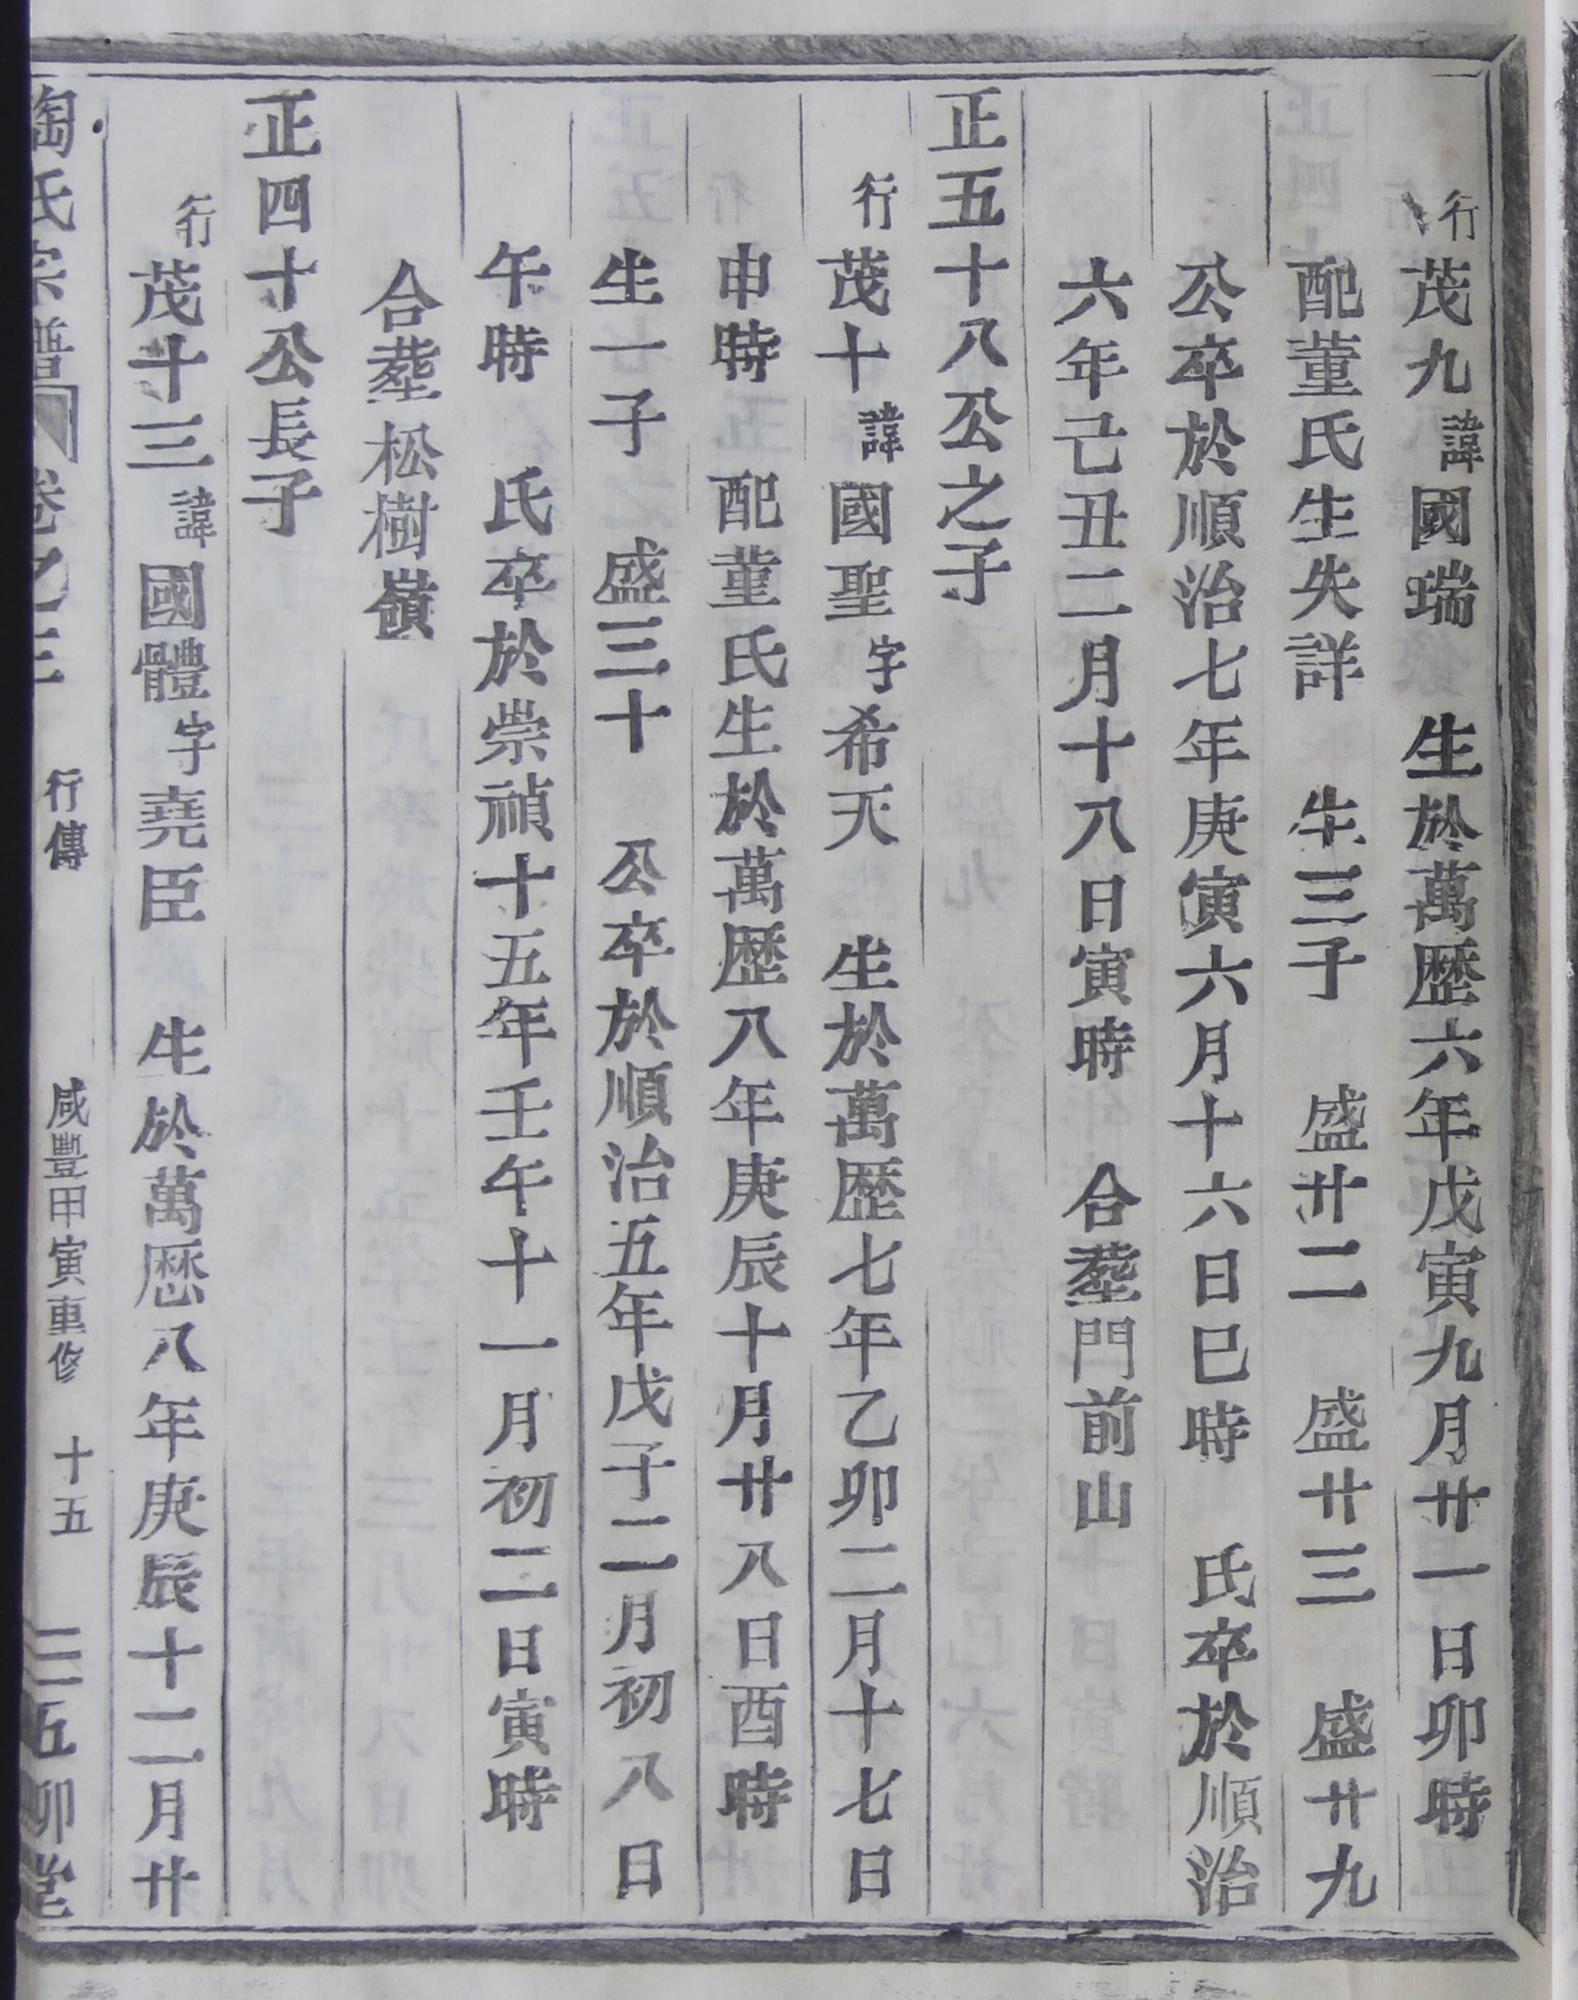 行茂九諱國瑞　生於萬歴六年戊寅九月廿一日卯時
配董氏生失詳　生三子　盛廿二　盛廿三　盛廿九
公卒於順治七年庚寅六月十六日巳時　氏卒於順治
六年己丑二月十八日寅時　合塟門前山
正五十八公之子
行茂十諱國聖字希天　生於萬歴七年乙卯二月十七日
申時　配董氏生於萬歴八年庚辰十月廿八日酉時
生一子　盛三十　公卒於順治五年戊子二月初八日
午時　氏卒於崇禎十五年壬午十一月初二日寅時
合塟松樹嶺
正四十公長子
行茂十三諱國體字堯臣　生於萬歷八年庚辰十二月廿
陶氏宗譜　卷之三　行傳　咸豐甲寅重修　十五　三五卯堂